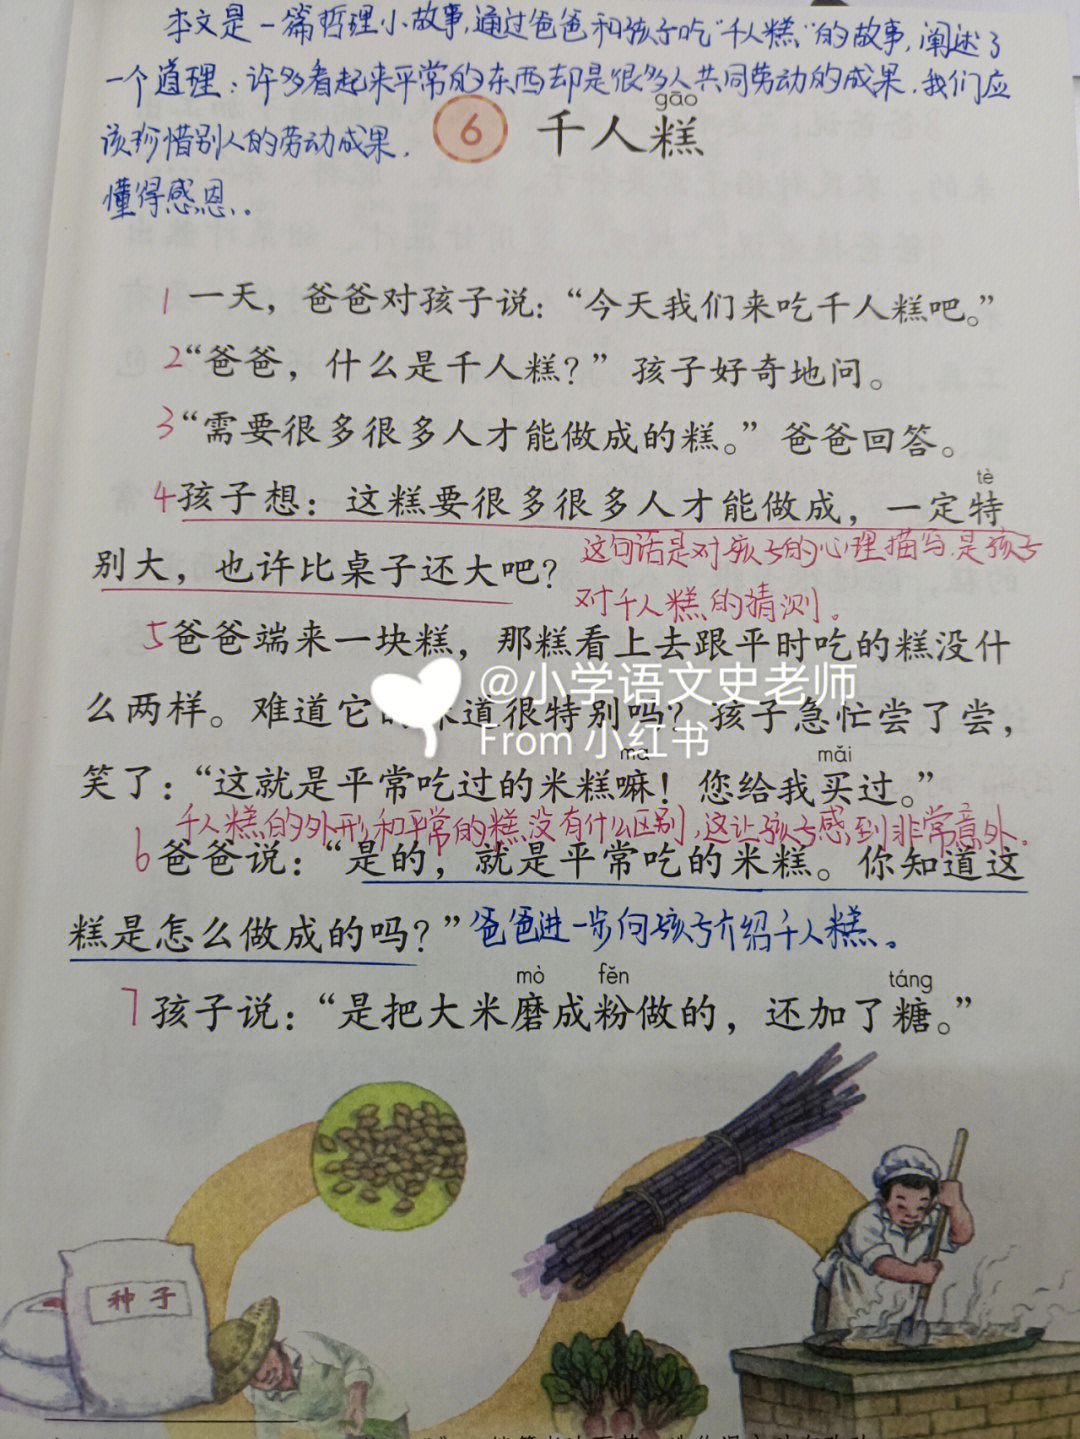 本文是一篇哲理小故事,通过爸爸和孩子吃"千人糕"的故事,阐述了
一个道理:许多看起来平常的东西却是很多人共同劳动的成果,我们应
该珍惜别人的劳动成果,
懂得感恩.
gāo
6 千人糕
1 一天，爸爸对孩子说：“今天我们来吃千人糕吧。”
2“爸爸，什么是千人糕？”孩子好奇地问。
3“需要很多很多人才能做成的糕。”爸爸回答。
tè
4孩子想：这糕要很多很多人才能做成，一定特
这句话是对孩子的心理描写.是孩子
别大，也许比桌子还大吧？
对千人糕的猜测。
5爸爸端来一块糕，那糕看上去跟平时吃的糕没什
@小学语文史老师
么两样。难道它的味道很特别吗？孩子急忙尝了尝，
From 小红书
ma mǎi
笑了：“这就是平常吃过的米糕嘛！您给我买过。”
千人糕的外形和平常的糕没有什么区别,这让孩子感到非常意外.
6爸爸说：“是的，就是平常吃的米糕。你知道这
糕是怎么做成的吗？”爸爸进一步向孩子介绍千人糕。
mò fěn táng
7孩子说：“是把大米磨成粉做的，还加了糖。”
种子